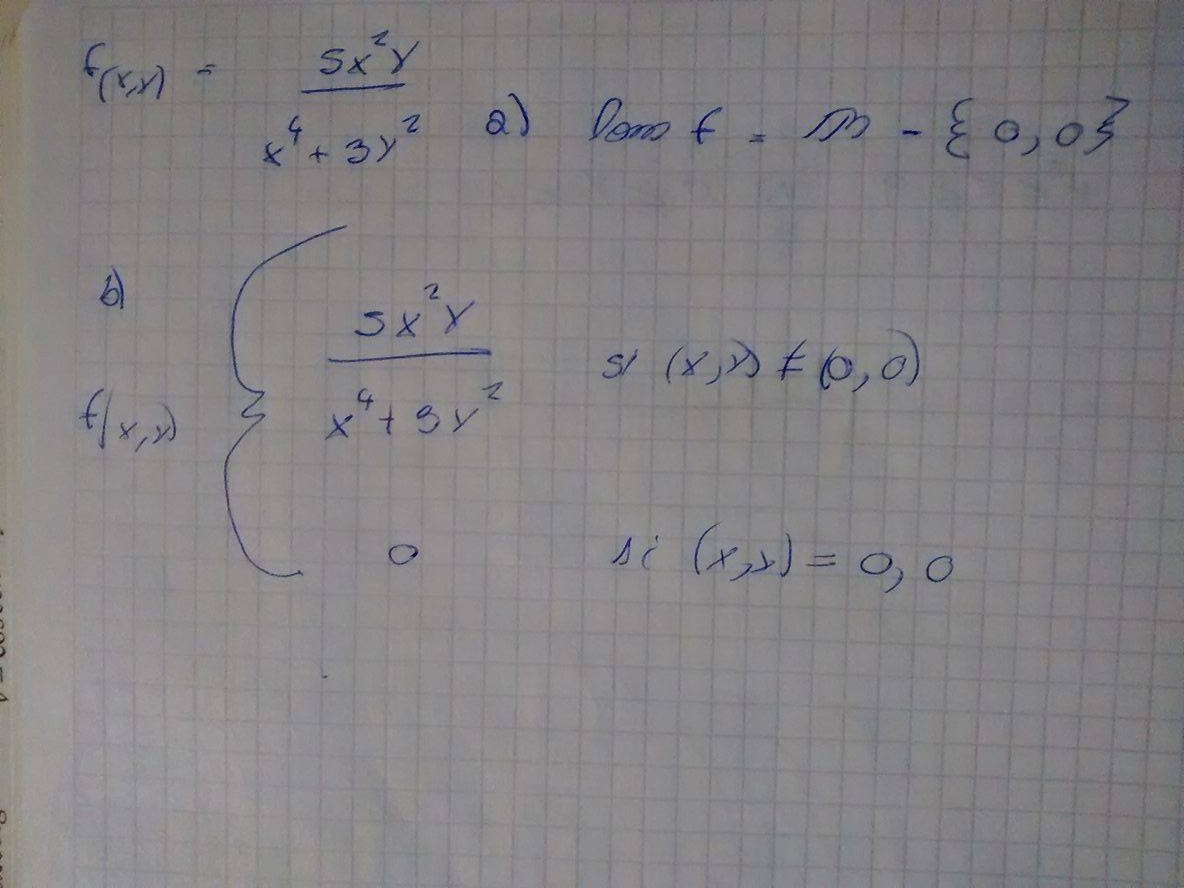 f(x,y) = 5x²y / x⁴ + 3y² a) Dom f = ℝ - {0,0}
b)
f(x,y) { 5x²y / x⁴ + 3y² si (x,y) ≠ (0,0)
0 si (x,y) = 0,0